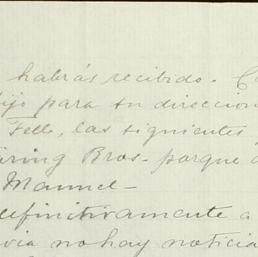 habrás recibido.
para tu direccion
Felb, las siguientes
Bros. porque
Manuel—
definitivamente a
no hay noticia